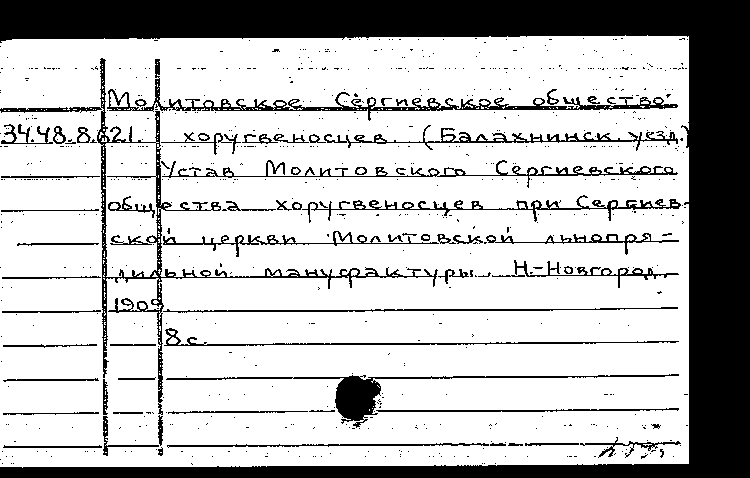 Молитовское Сергиевское общество
34.48.8.621. хоругвеносцев. (Балахнинск. уезд.)
Устав Молитовского Сергиевского
общества хоругвеносцев при Сергиев-
ской церкви Молитовской льнопря=
дильной мануфактуры. Н.-Новгород,
1909.
8 с.